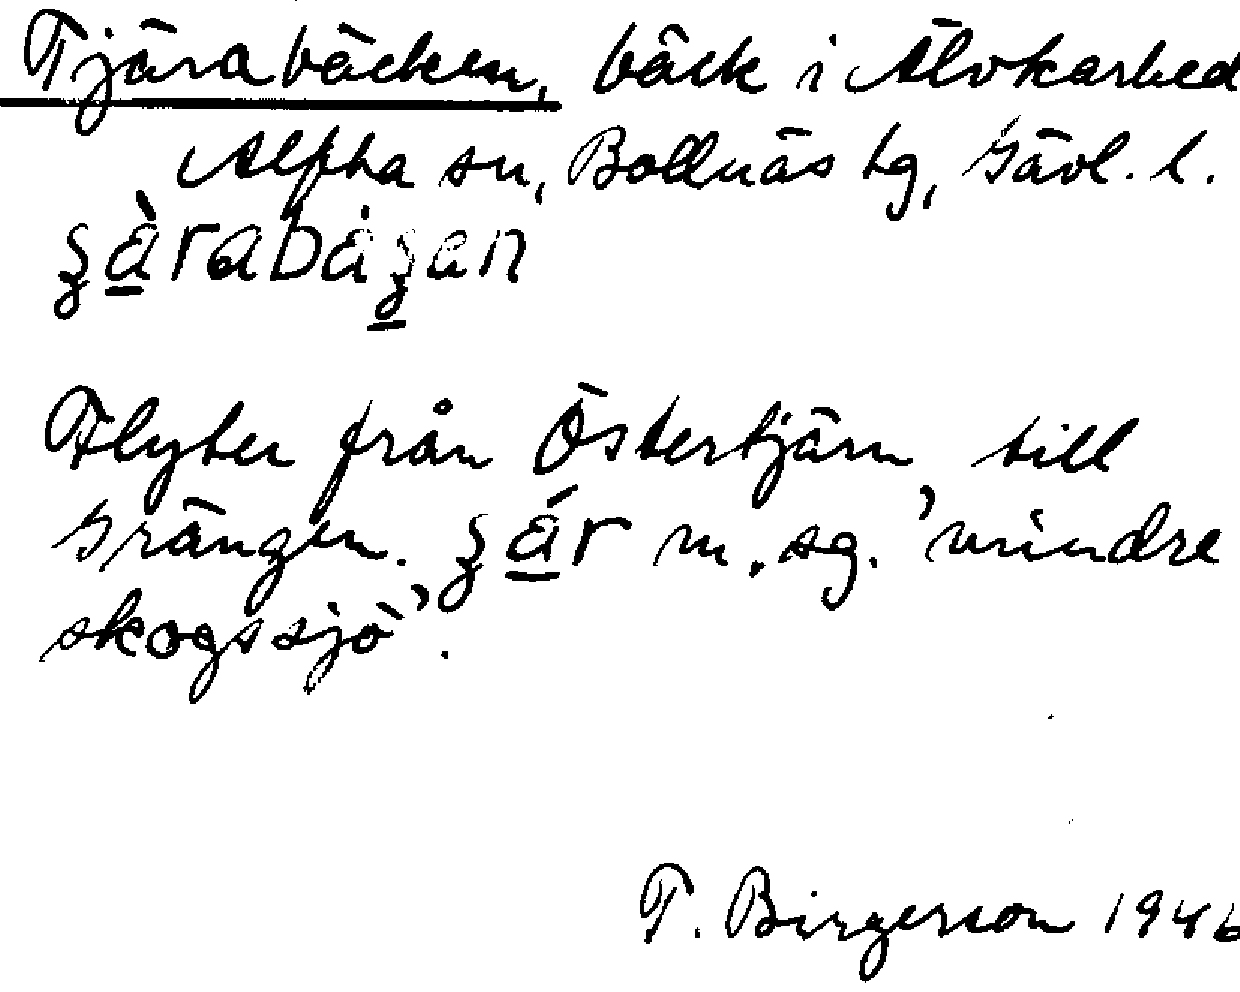 Tjärabäcken, bäck i Älvkarhed
Alfta sn, Bollnäs tg, Gävl. l.
Flyter från Östertjärn till
Grängen. m. sg. 'mindre
skogssjö'.
T. Birgerson 1946